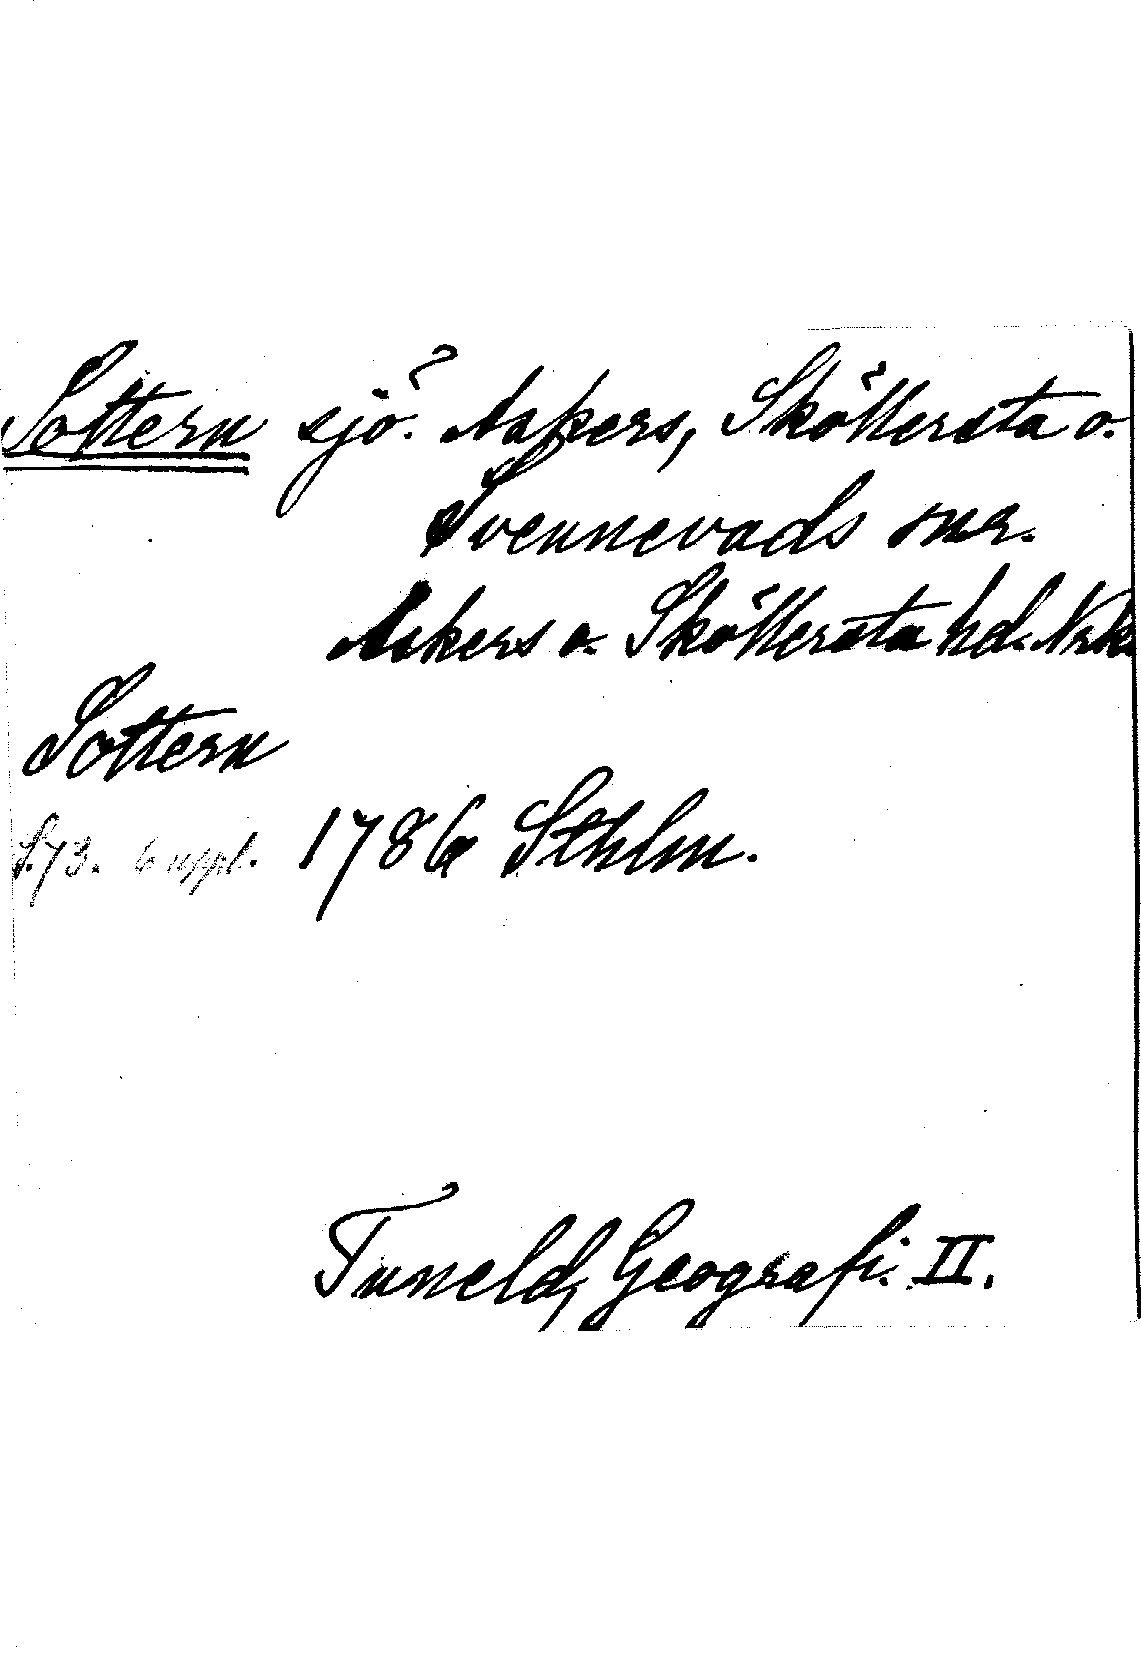 Sottern sjö. Askers, Sköllersta o.
Svennevads snr.
Askers o. Sköllersta hd. Nrk.
Sottern
S. 73. 6 uppl. 1786 Sthlm.
Tuneld, Geografi. II.